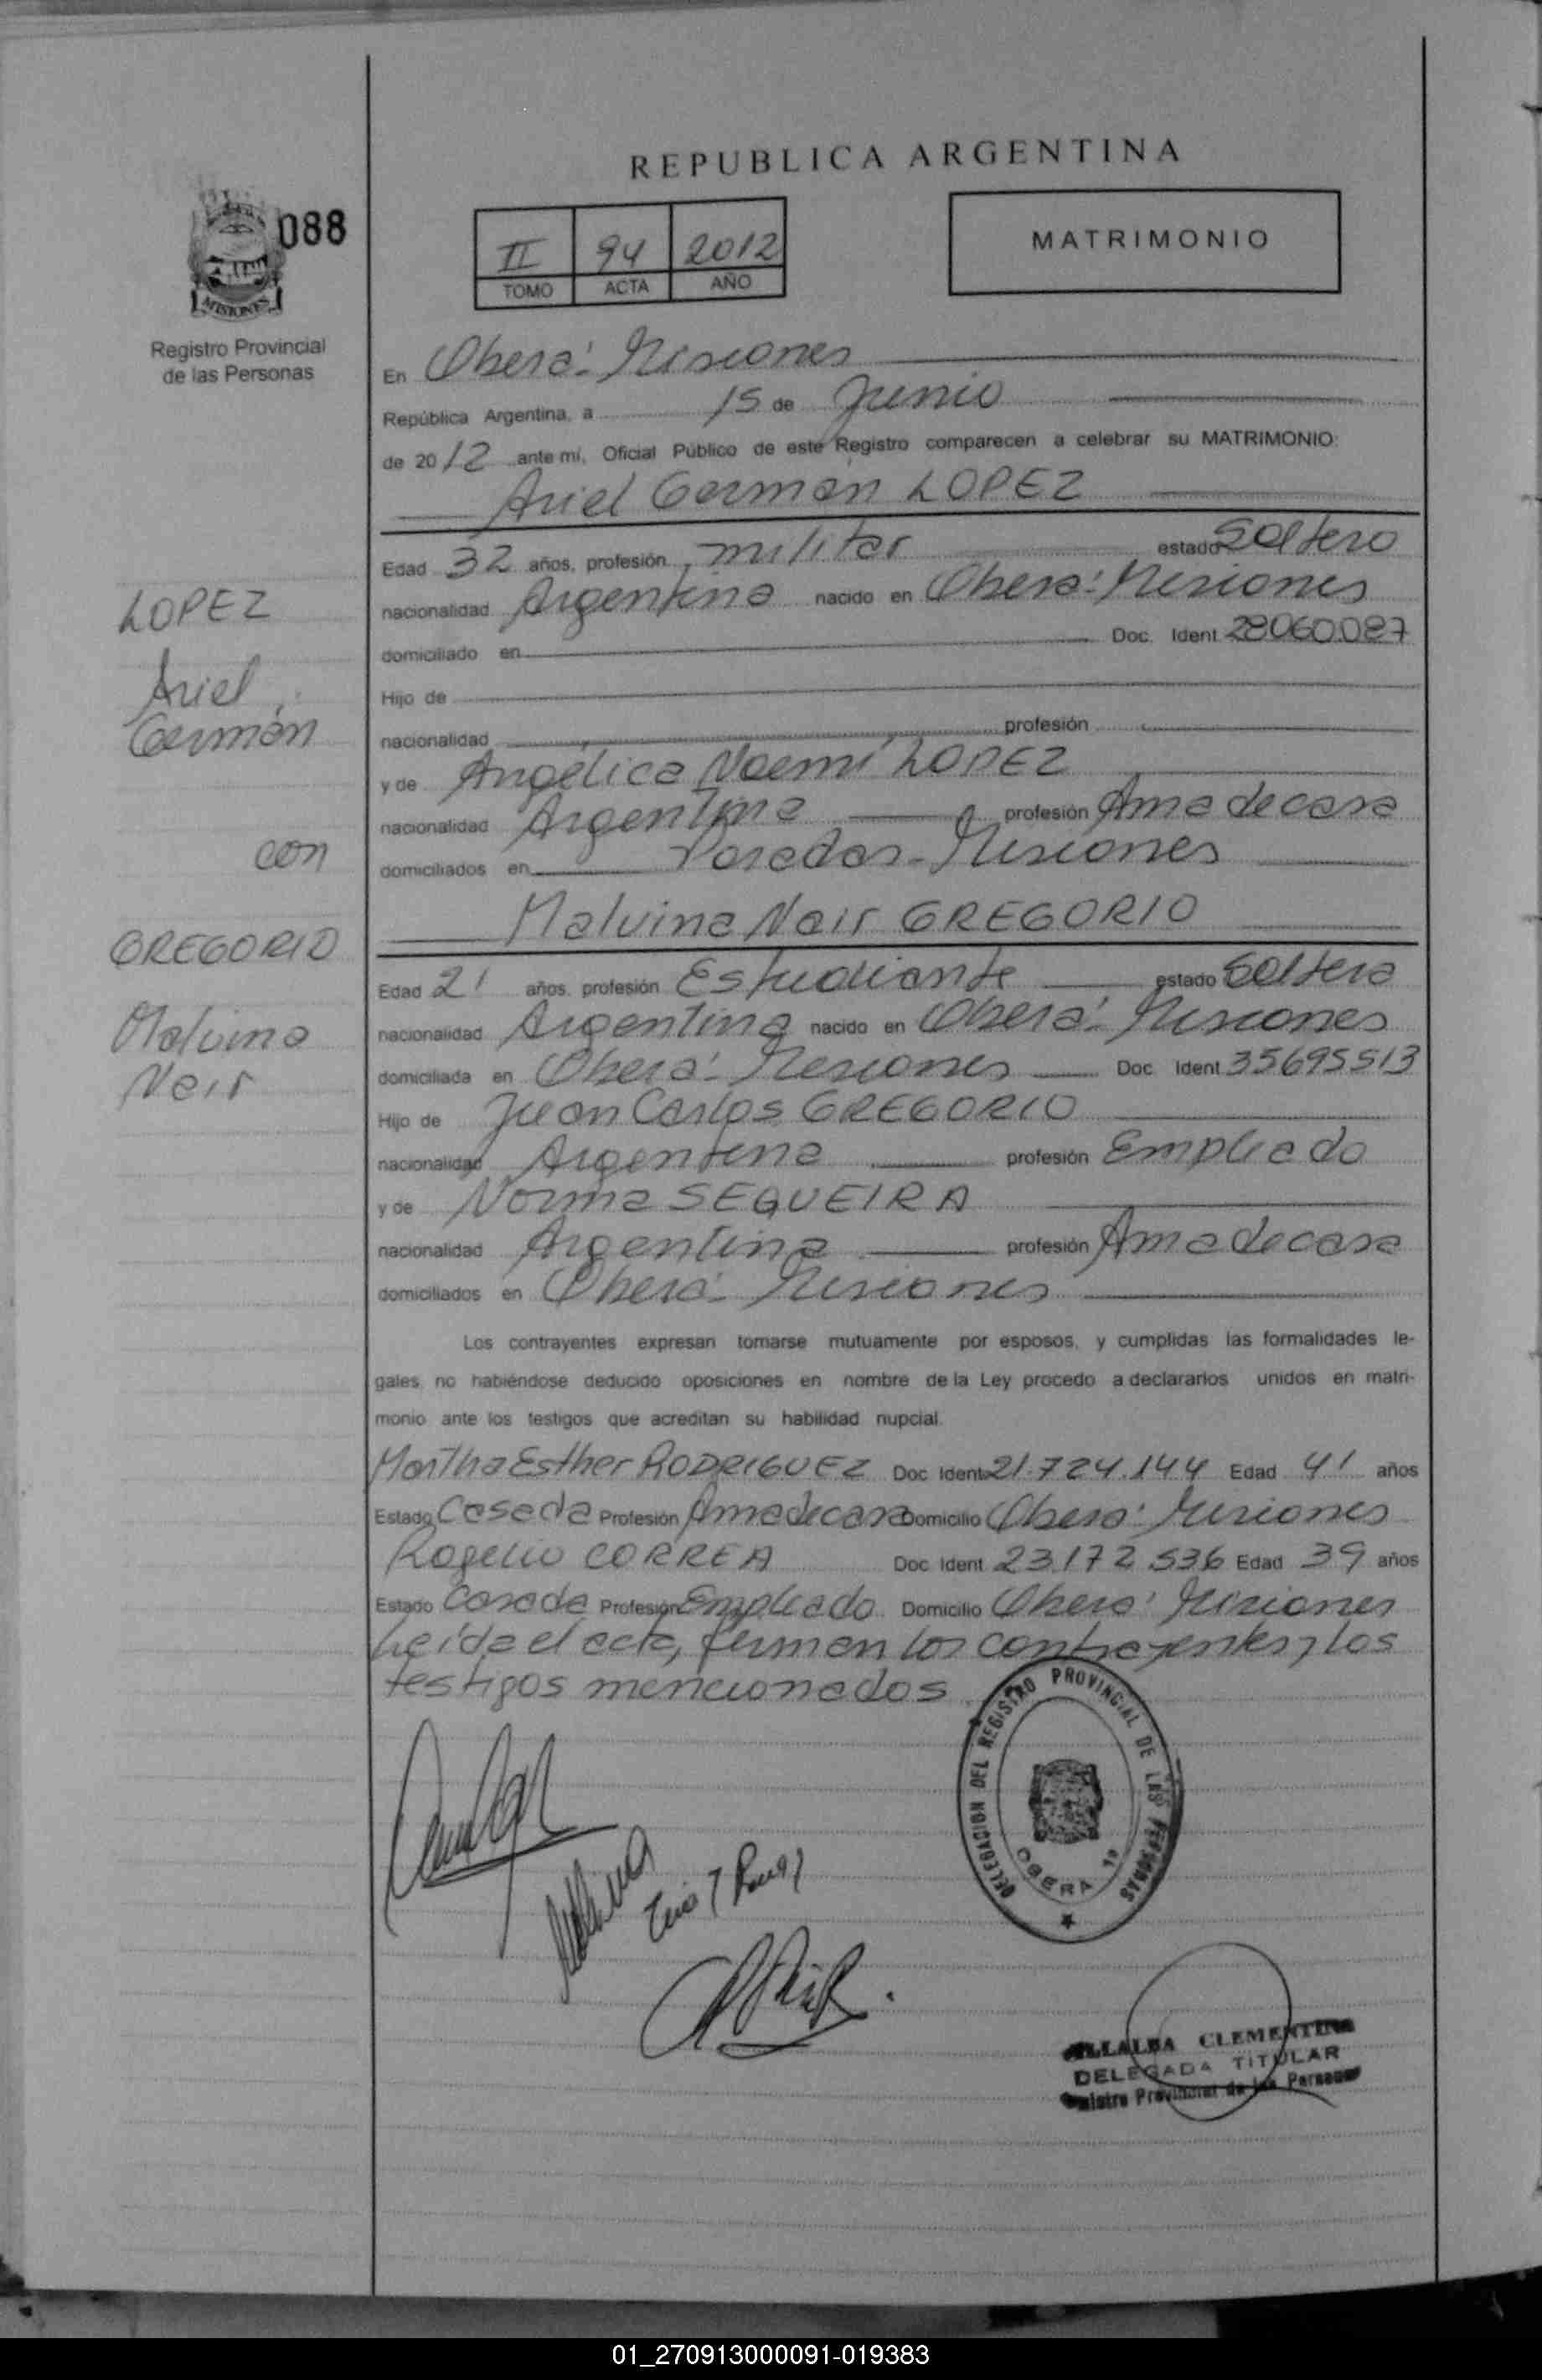 REPUBLICA ARGENTINA
088
MISIONES
Registro Provincial
de las Personas
II 94 2012
TOMO ACTA AÑO
MATRIMONIO
En Oberá: Misiones
República Argentina, a 15 de Junio
de 2012 ante mí, Oficial Público de este Registro comparecen a celebrar su MATRIMONIO:
Ariel Germán LOPEZ
Edad 32 años, profesión militar estado Soltero
nacionalidad Argentina nacido en Oberá: Misiones
domiciliado en Doc. Ident 28060.087
Hijo de
nacionalidad profesión
y de Angélica Noemí LOPEZ
nacionalidad Argentina profesión Ama de casa
domiciliados en Posadas - Misiones
Malvina Nair GREGORIO
Edad 21 años, profesión Estudiante estado Soltera
nacionalidad Argentina nacido en Oberá: Misiones
domiciliada en Oberá: Misiones Doc. Ident 35695513
Hijo de Juan Carlos GREGORIO
nacionalidad Argentina profesión Empleado
y de Norma SEQUEIRA
nacionalidad Argentina profesión Ama de casa
domiciliados en Oberá - Misiones
Los contrayentes expresan tomarse mutuamente por esposos, y cumplidas las formalidades le-
gales, no habiéndose deducido oposiciones en nombre de la Ley procedo a declararlos unidos en matri-
monio ante los testigos que acreditan su habilidad nupcial.
Martha Esther RODRIGUEZ Doc Ident 21.724.144 Edad 41 años
Estado Casada Profesión Ama de casa Domicilio Oberá: Misiones
Rogelio CORREA Doc Ident 23.172.536 Edad 39 años
Estado Casado Profesión Empleado Domicilio Oberá: Misiones
Leída el acta, firman los contrayentes y los
testigos mencionados
LOPEZ
Ariel
Germán
con
GREGORIO
Malvina
Nair
DELEGACION DEL REGISTRO PROVINCIAL DE LAS PERSONAS
OBERA
Malvina
CLEMENTINA
DELEGADA TITULAR
Provincial de las Personas
01_270913000091-019383